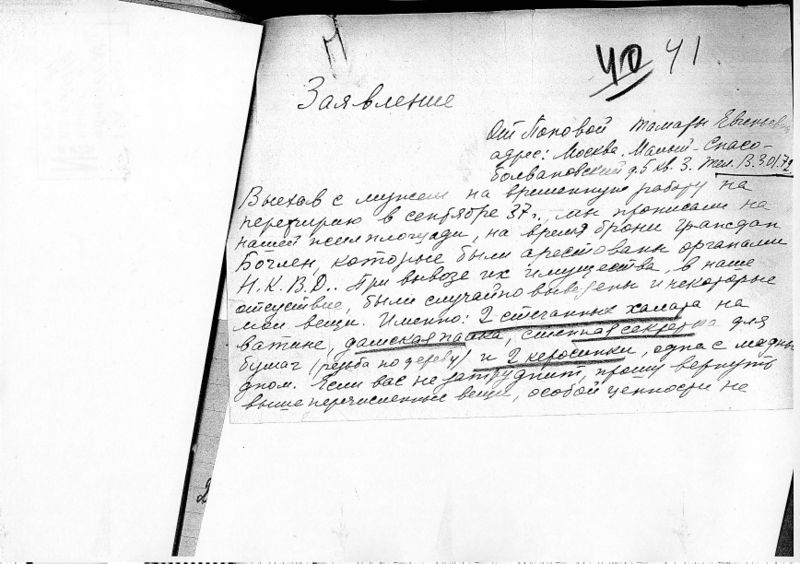 40 41
Заявление
От Поповой Тамары Евгеньевны
адрес: Москва, Малый-Спасо-
болвановский д. 5 кв. 3. тел. В.3.01.72
Выехав с мужем на временную работу на
периферию в сентябре 37 г., мы прописали на
нашей жилплощади, на время брони граждан
Бочлен, которые были арестованы органами
Н.К.В.Д.. При вывозе их имущества, в наше
отсуствие, были случайно вывезены и некоторые
мои вещи. Именно: 2 стеганных халата на
ватине, дамская папка, стенная секретка для
бумаг (резьба по дереву) и 2 керосинки, одна с медным
дном. Если вас не затруднит, прошу вернуть
выше перечисленные вещи, особой ценности не